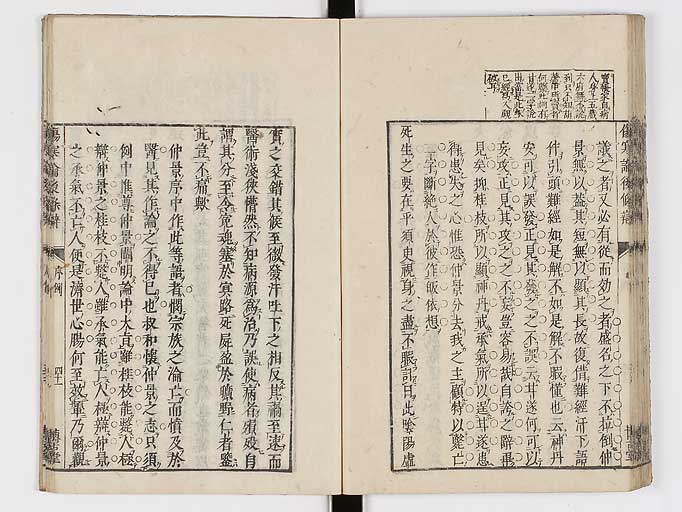 議之者又必有從而効之者盛名之下不拉倒仲
景無以蓋其短無以顯其長故復借難經汗下語
作引頭難經如是解不如是解不暇懂也云神丹
安可以誤發正見其發之之不誤云甘遂何可以
妄攻正見其攻之之不妄豈容易哉自誇之辭畢
見矣抑桂枝所以顯神丹戒承氣所以逞甘遂患
得患失之心惟恐仲景分去我之主顧特以斃亡
二字斷絕人於彼作皈依想
死生之要在乎須臾視身之盡不暇計日此陰陽虛
實之交錯其候至微發汗吐下之相反其禍至速而
醫術淺狹懵然不知病源為治乃誤使病者殞歿自
謂其分至令冤魂塞於冥路死屍盈於曠野仁者鑒
此豈不痛歟
仲景序中作此等語者憫宗族之淪亡而憤及於
醫見其作論之不得已也叔和襲仲景之意只須
例中推尊仲景闡明論中大旨雖桂枝能斃人極
辯仲景之桂枝不斃人雖承氣能亡人極辯仲景
之承氣不亡人便是濟世心腸何至敘筆乃爾觀
傷寒論後條辨
序例